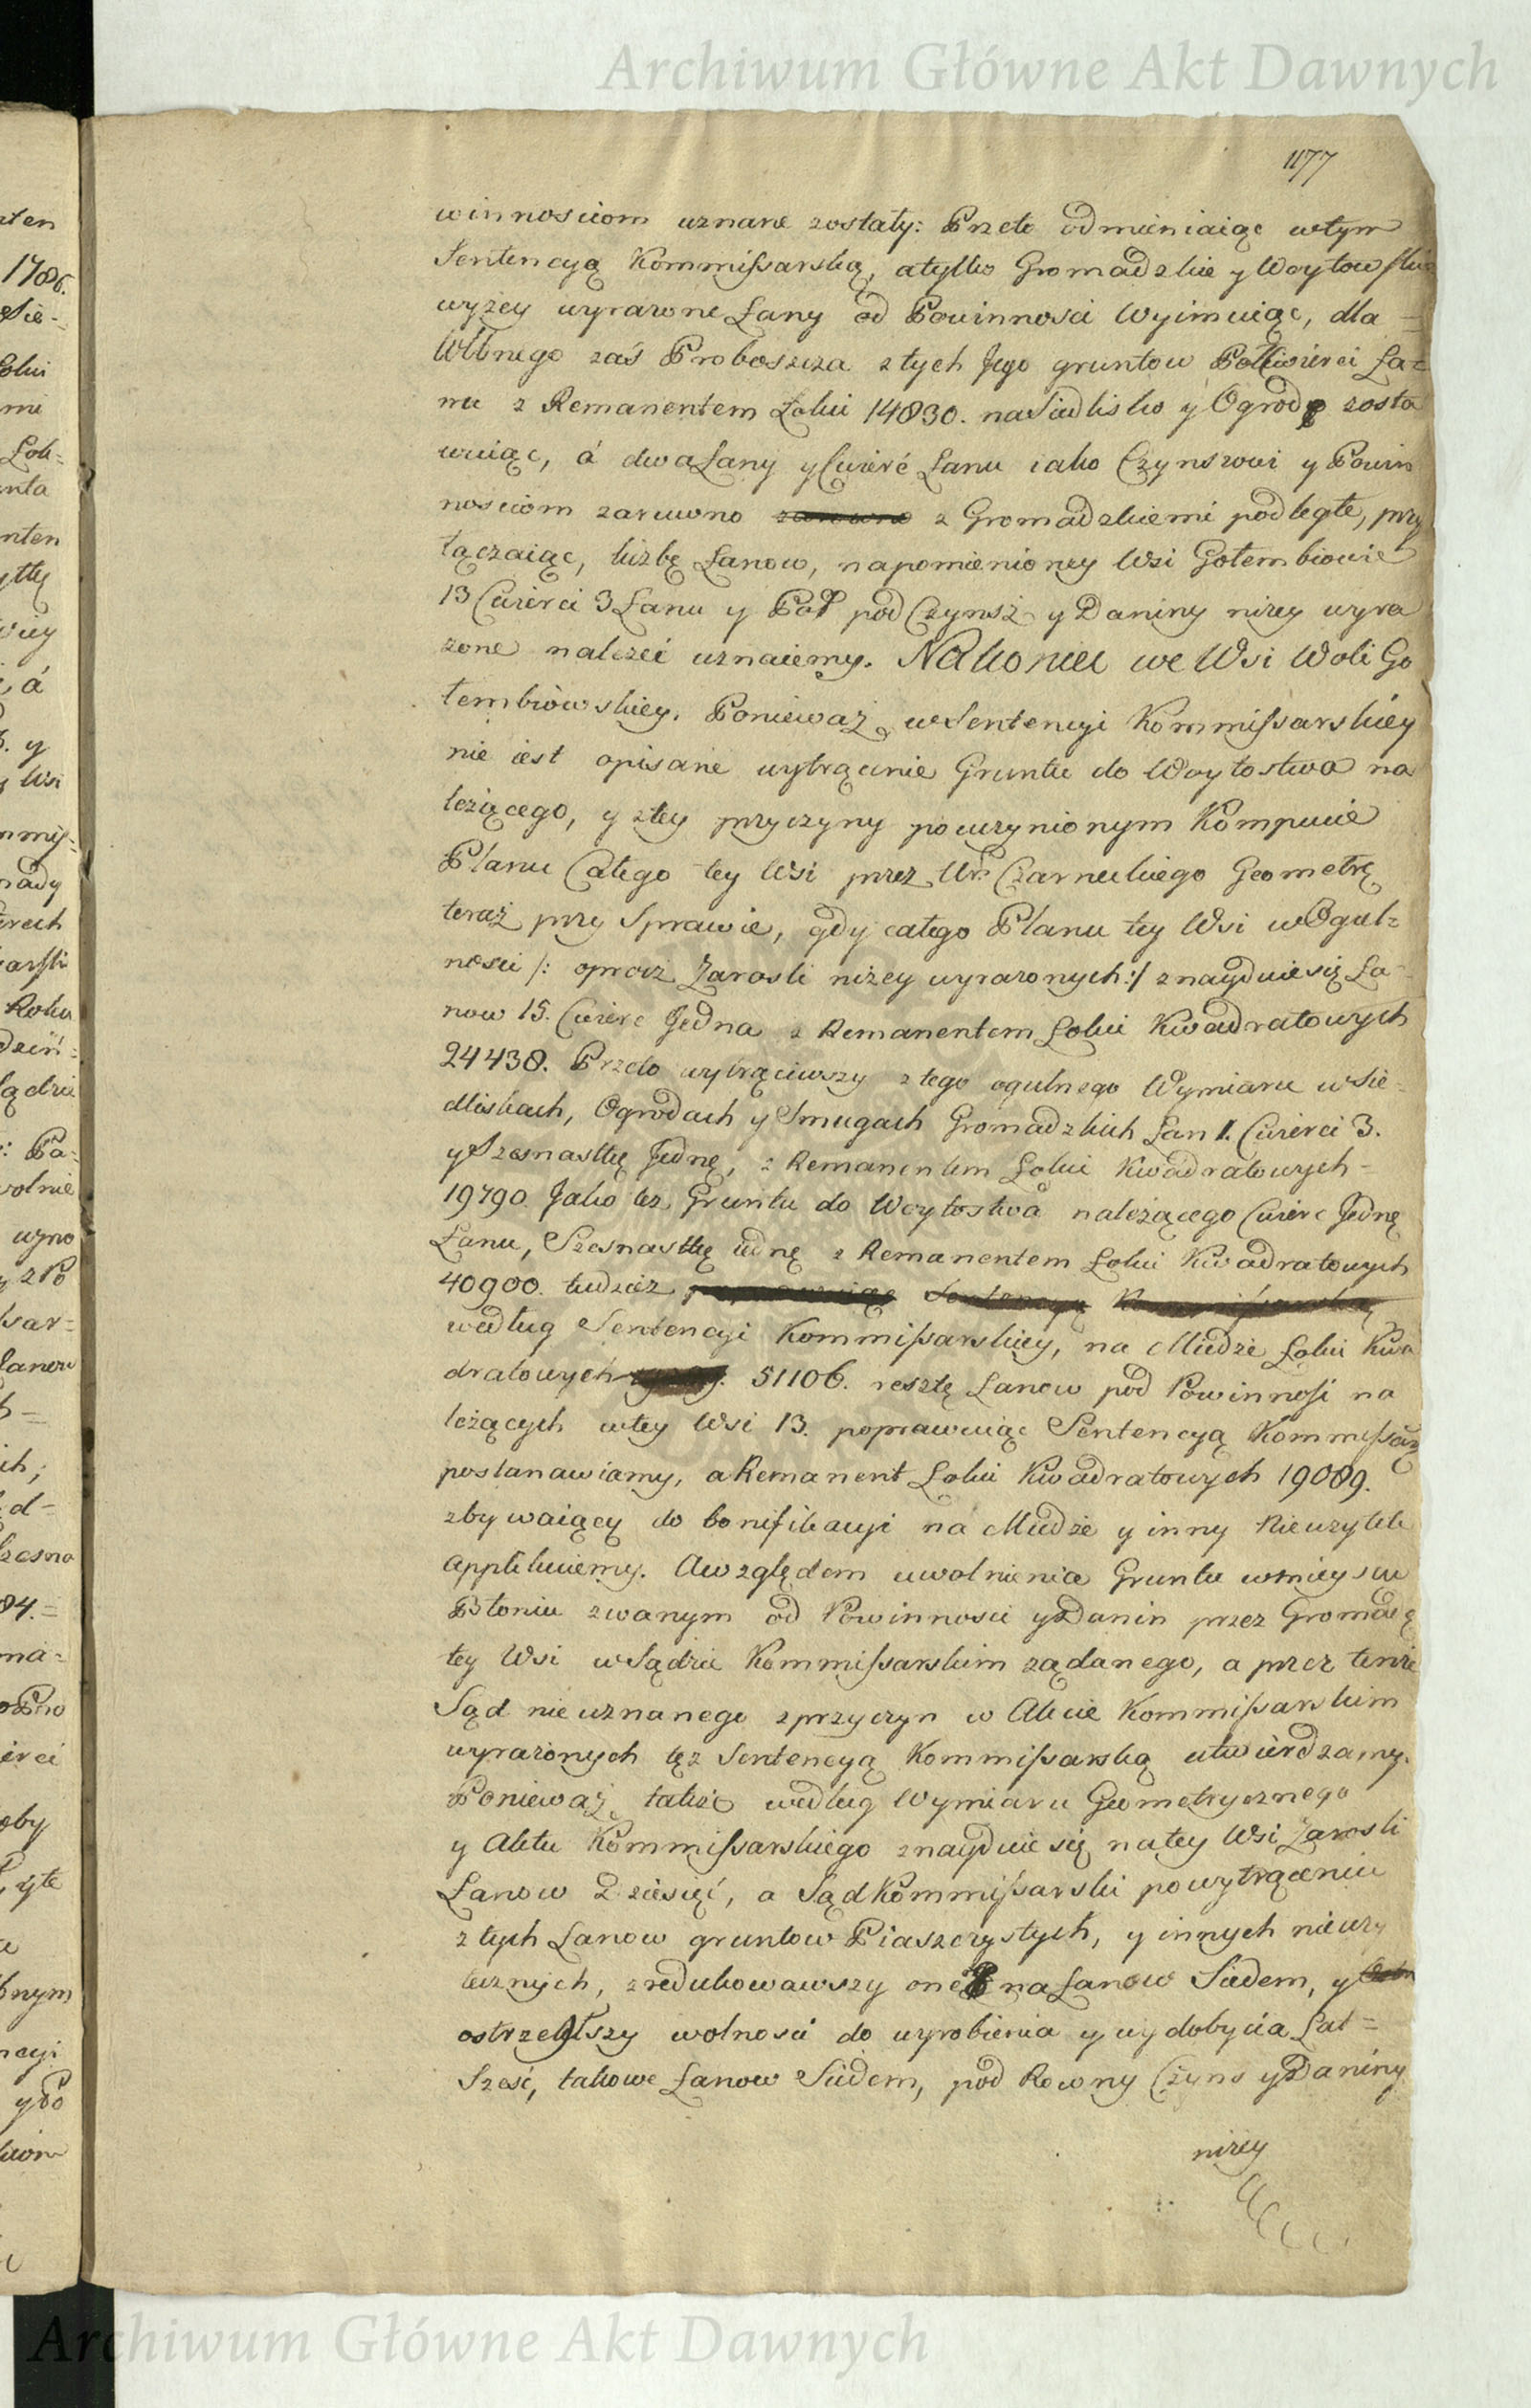 Archiwum Główne Akt Dawnych
1177
winnosciom uznane zostały: Przeto odmieniaiąc wtym
Sentencyą Kommissarską, atylko Gromadzkie y Woytowskie
wyżey wyrazone Łany od Powinnosci Wyimuiąc, dla =
Wlbnego zaś Proboszcza ztych Jego gruntow Połcwierci Ła=
nu z Remanentem Łokci 14830. naSiedlisko y Ogrod zosta
wuiąc, á dwaŁany yCwierć Łanu iako Czynszowi y Powin
nosciom zarowno zarowno z Gromadzkiemi podległe, przy
łączaiąc, liczbę Łanow, napomienioney Wsi Gołembiowie
13 Cwierci 3 Łanu y Poł pod Czynsz y Daniny niżey wyra
zone nalezeć uznaiemy. Nakoniec we Wsi Woli Go
łembiowskiey, Ponieważ wSentencyi Kommissarskiey
nie iest opisane wytrącenie Gruntu do Woytostwa na
leżącego, y ztey przyczyny pouczynionym Kompucie
Planu Całego tey Wsi przez Ur. Czarneckiego Geometrę
teraz przy Sprawie, gdy całego Planu tey Wsi wOgul=
nosci /: oprocz Zarosli niżey wyrazonych:/ znayduie się Ła=
now 15. Cwierc Jedna z Remanentem Łokci Kwadratowych
24438. Przeto wytrąciwszy ztego ogulnego Wymiaru wSie=
dliskach, Ogrodach y Smugach Gromadzkich Łan 1. Cwierci 3.
ySzesnastkę Jednę, z Remanentem Łokci Kwadratowych =
19790. Jako tez Gruntu do Woytostwa należącego Cwierc Jednę
Łanu, Szesnastkę iednę z Remanentem Łokci Kwadratowych
40900. tudzież Sentencyą Kommissarską
według Sentencyi Kommissarskiey, na Miedze Łokci Kwa
dratowych 51106. resztę Łanow pod Powinnosci na
leżących wtey Wsi 13. poprawuiąc Sentencyą Kommissar
postanawiamy, a Remanent Łokci Kwadratowych 19089.
zbywaiący do bonifikacyi na Miedze y inny Nieuzytek
applikuiemy. Awzględem uwolnienia Gruntu wmieyscu
Błoniu zwanym od Powinnosci yDanin przez Gromadę
tey Wsi wSądzie Kommissarskim ządanego, a przez tenże
Sąd nieuznanego zprzyczyn w Akcie Kommissarskim
wyrażonych tęz Sentencyą Kommissarską utwierdzamy.
Ponieważ także według Wymiaru Geometrycznego
y Aktu Kommissarskiego znayduie się natey Wsi Zarosli
Łanow Dziesięć, a Sąd Kommissarski powytrąceniu
ztych Łanow gruntow Piaszczystych, y innych nieuzy
tecznych, zredukowawszy one na Łanow Siedem, y
ostrzegłszy wolnosci do wyrobienia y wydobycia Lat =
Szesć, takowe Łanow Siedem, pod Rowny Czyns yDaniny
niżey
Archiwum Główne Akt Dawnych